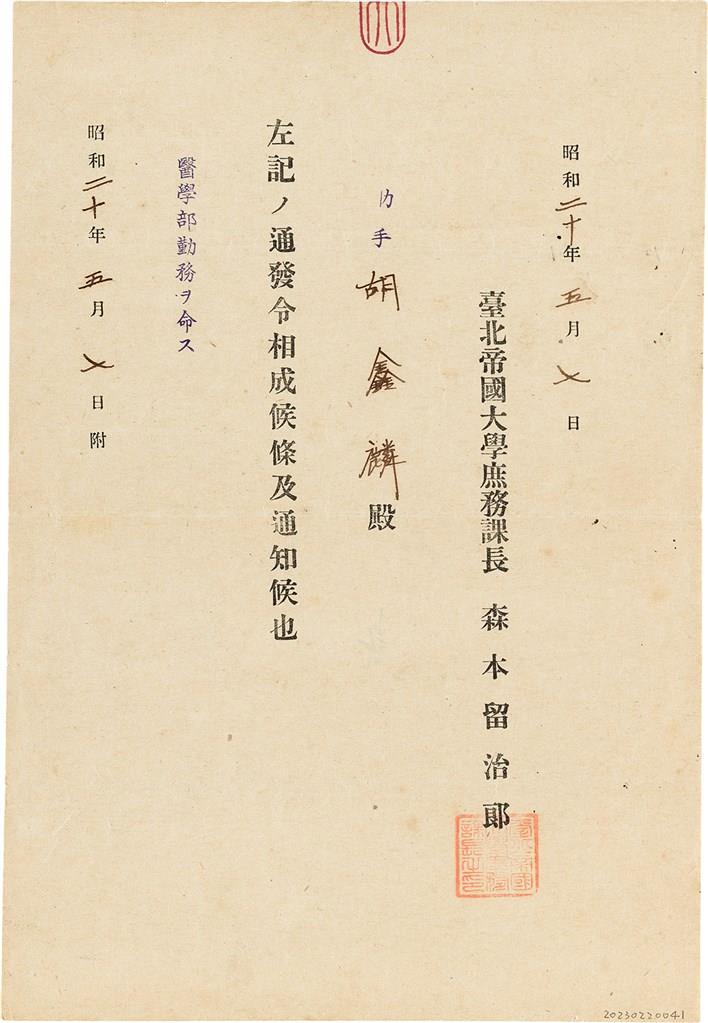 昭和二十年五月七日
臺北帝國大學庶務課長 森本留治郎
助手 胡鑫麟殿
左記ノ通發令相成候條及通知候也
醫學部勤務ヲ命ス
昭和二十年五月七日附
20230220041